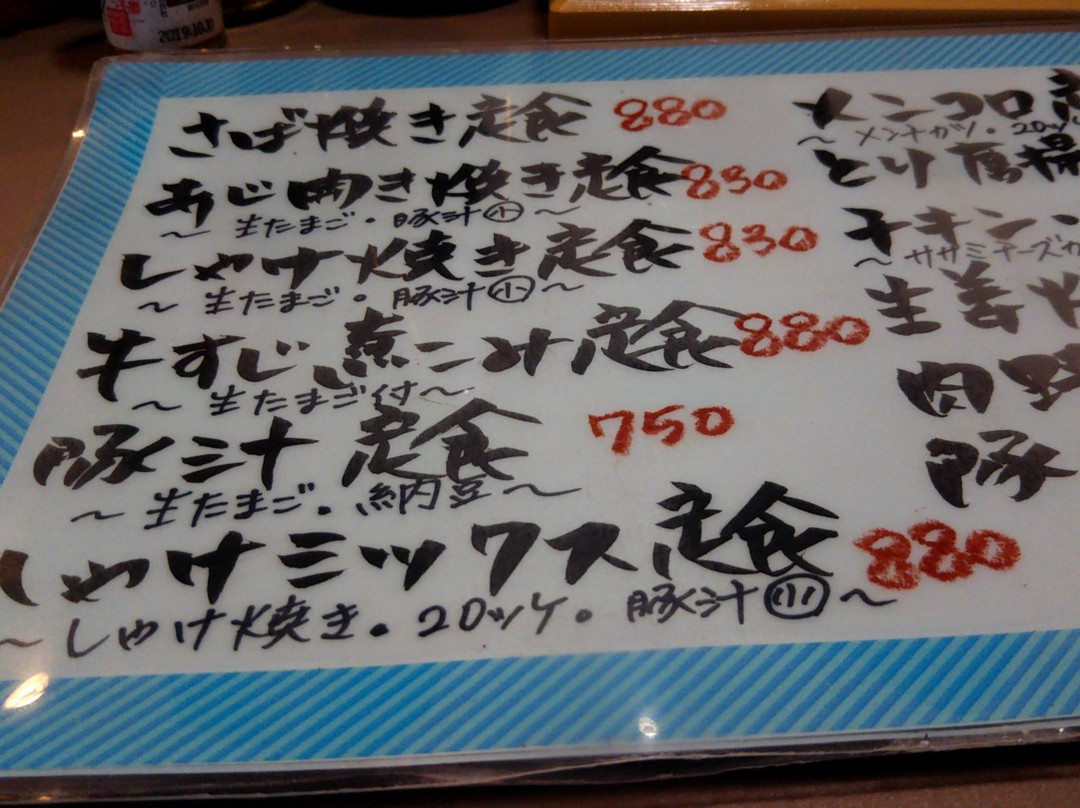 2019.10.
さば焼き定食 880
あじ開き焼き定食 830
～生たまご・豚汁㊙～
しゃけ焼き定食 830
～生たまご・豚汁小～
牛すじ煮こみ定食 880
～生たまご付～
豚汁定食 750
～生たまご・納豆～
しゃけミックス定食 880
～しゃけ焼き。20ッケ。豚汁小～
メンコロ
～メンチカツ・20ッケ
とり唐揚
チキン
～ササミチーズカ
生姜
肉野
豚